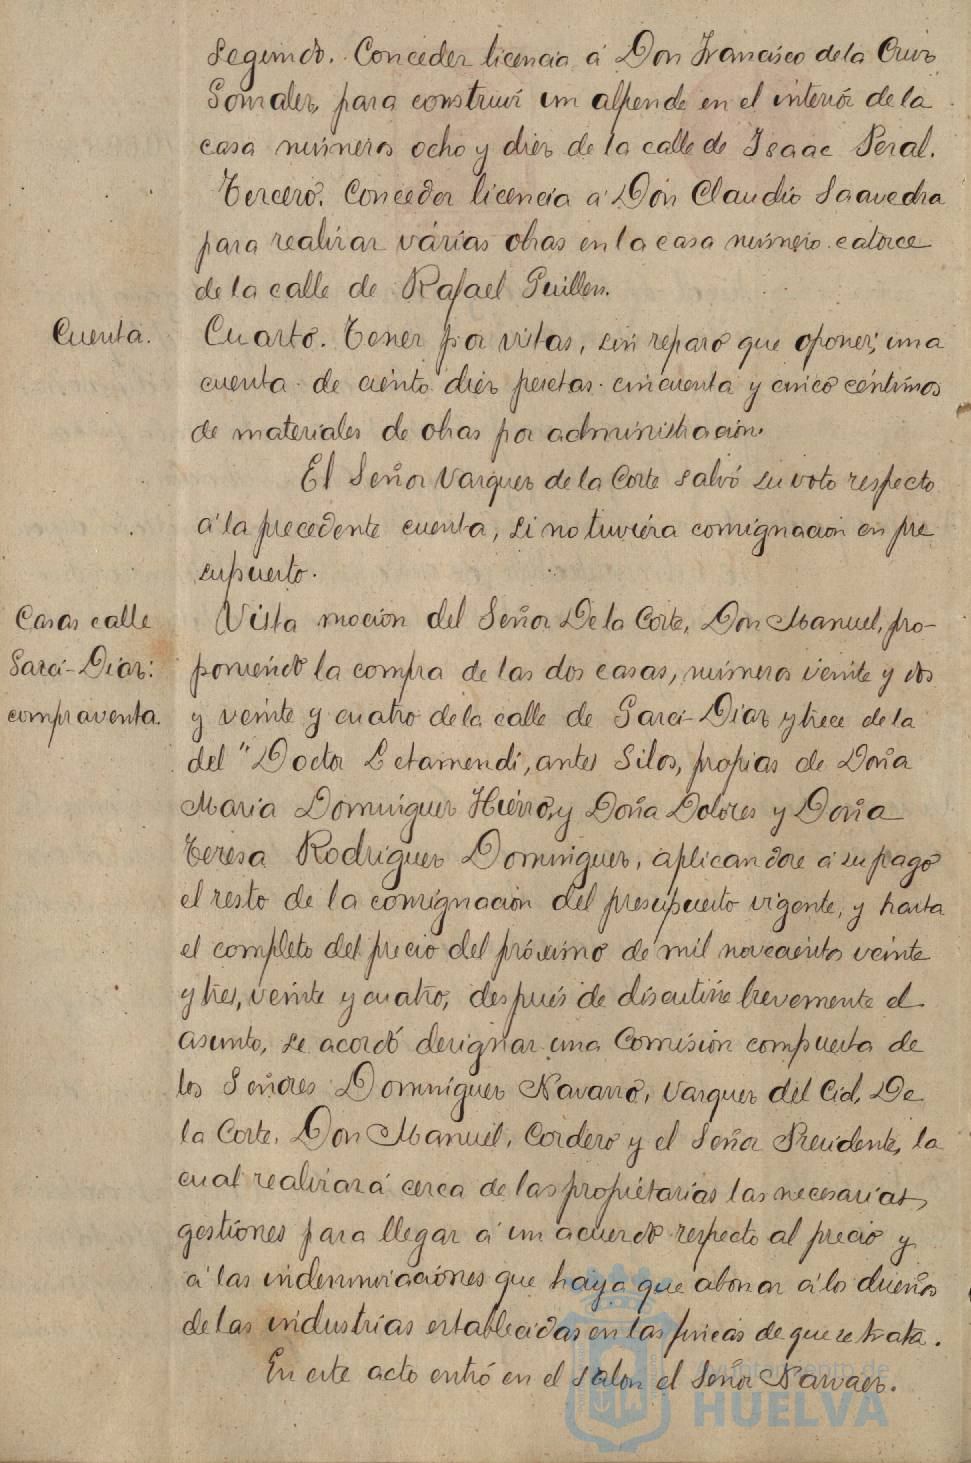 Segundo. Conceder licencia á Don Francisco de la Cruz
Gonzalez, para construir un alpende en el interior de la
casa números ocho y diez de la calle de Isaac Peral.
Tercero. Conceder licencia á Don Claudio Saavedra
para realizar várias obras en la casa número catorce
de la calle de Rafael Guillen.
Cuenta.
Cuarto. Tener por vistas, sin reparo que oponer, una
cuenta de ciento diez pesetas cincuenta y cinco céntimos
de materiales de obras por administración.
El Señor Vazquez de la Corte salvó su voto respecto
á la precedente cuenta, si no tuviera consignación en pre
supuesto.
Casas calle
Garci-Diaz:
compraventa.
Vista moción del Señor De la Corte, Don Manuel, pro-
poniendo la compra de las dos casas, números veinte y dos
y veinte y cuatro de la calle de Garci-Diaz y trece de la
del "Doctor Letamendi, antes Silos, propias de Doña
Maria Dominguez Hierro, y Doña Dolores y Doña
Teresa Rodriguez Dominguez, aplicandose á su pago
el resto de la consignación del presupuesto vigente, y hasta
el completo del precio del próximo de mil novecientos veinte
y tres, veinte y cuatro, después de discutirse brevemente el
asunto, se acordó designar una Comisión compuesta de
los Señores Dominguez Navarro, Vazquez del Cid, De
la Corte, Don Manuel, Cordero y el Señor Presidente, la
cual realizará cerca de las propietarias las necesarias
gestiones para llegar á un acuerdo respecto al precio y
á las indemnizaciones que haya que abonar á los dueños
de las industrias establecidas en las fincas de que se trata.
En este acto entró en el salon el Señor Narvaez.
Ayuntamiento de
HUELVA